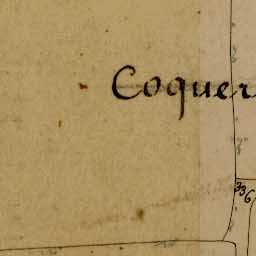 Coquer
336